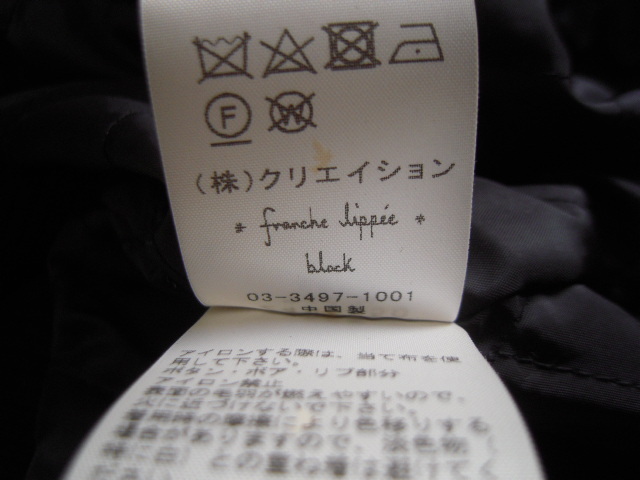 F
W
(株)クリエイション
* franche lippée *
black
03-3497-1001
中国製
アイロンする際は、当て布を使
用して下さい。
ボタン・ボア・リブ部分
アイロン禁止
表面の毛羽が燃えやすいので、
火に近づけないで下さい。
着用時の摩擦により色移りする
場合がありますので、淡色物(
特に白)との重ね着は避けてく